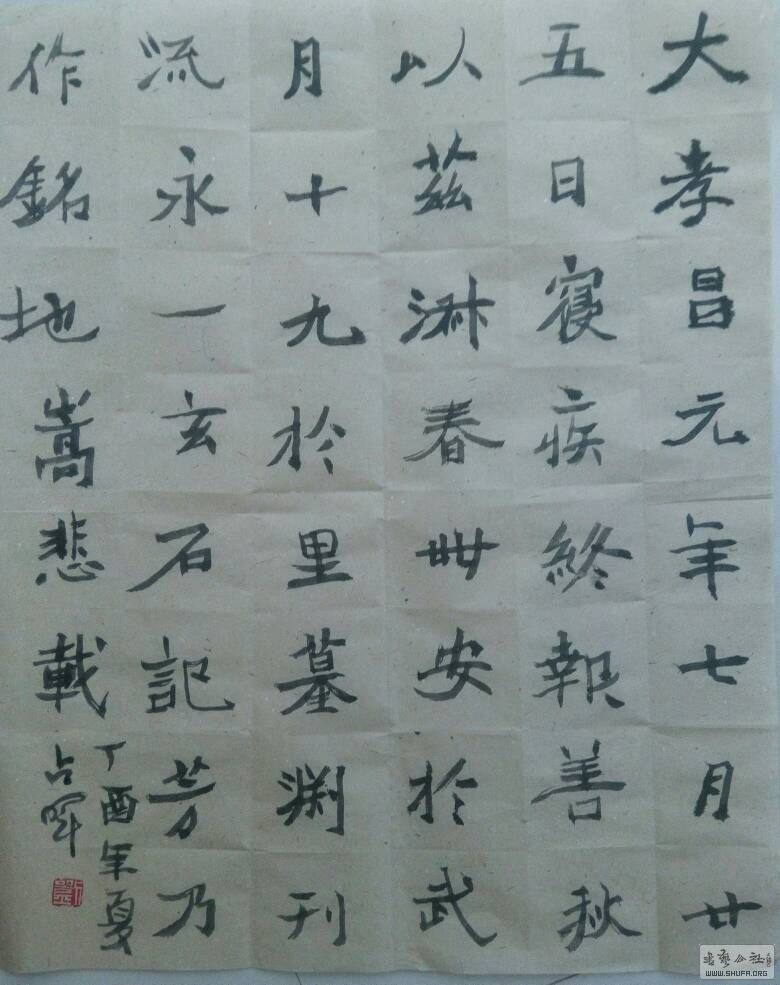 大孝昌元年七月廿
五日寝疾終報善秋
以茲淋春卌安於武
月十九於里墓渊刊
流永一玄石記芳乃
作銘地嵩悲載
丁酉年夏
WWW.SHUFA.ORG